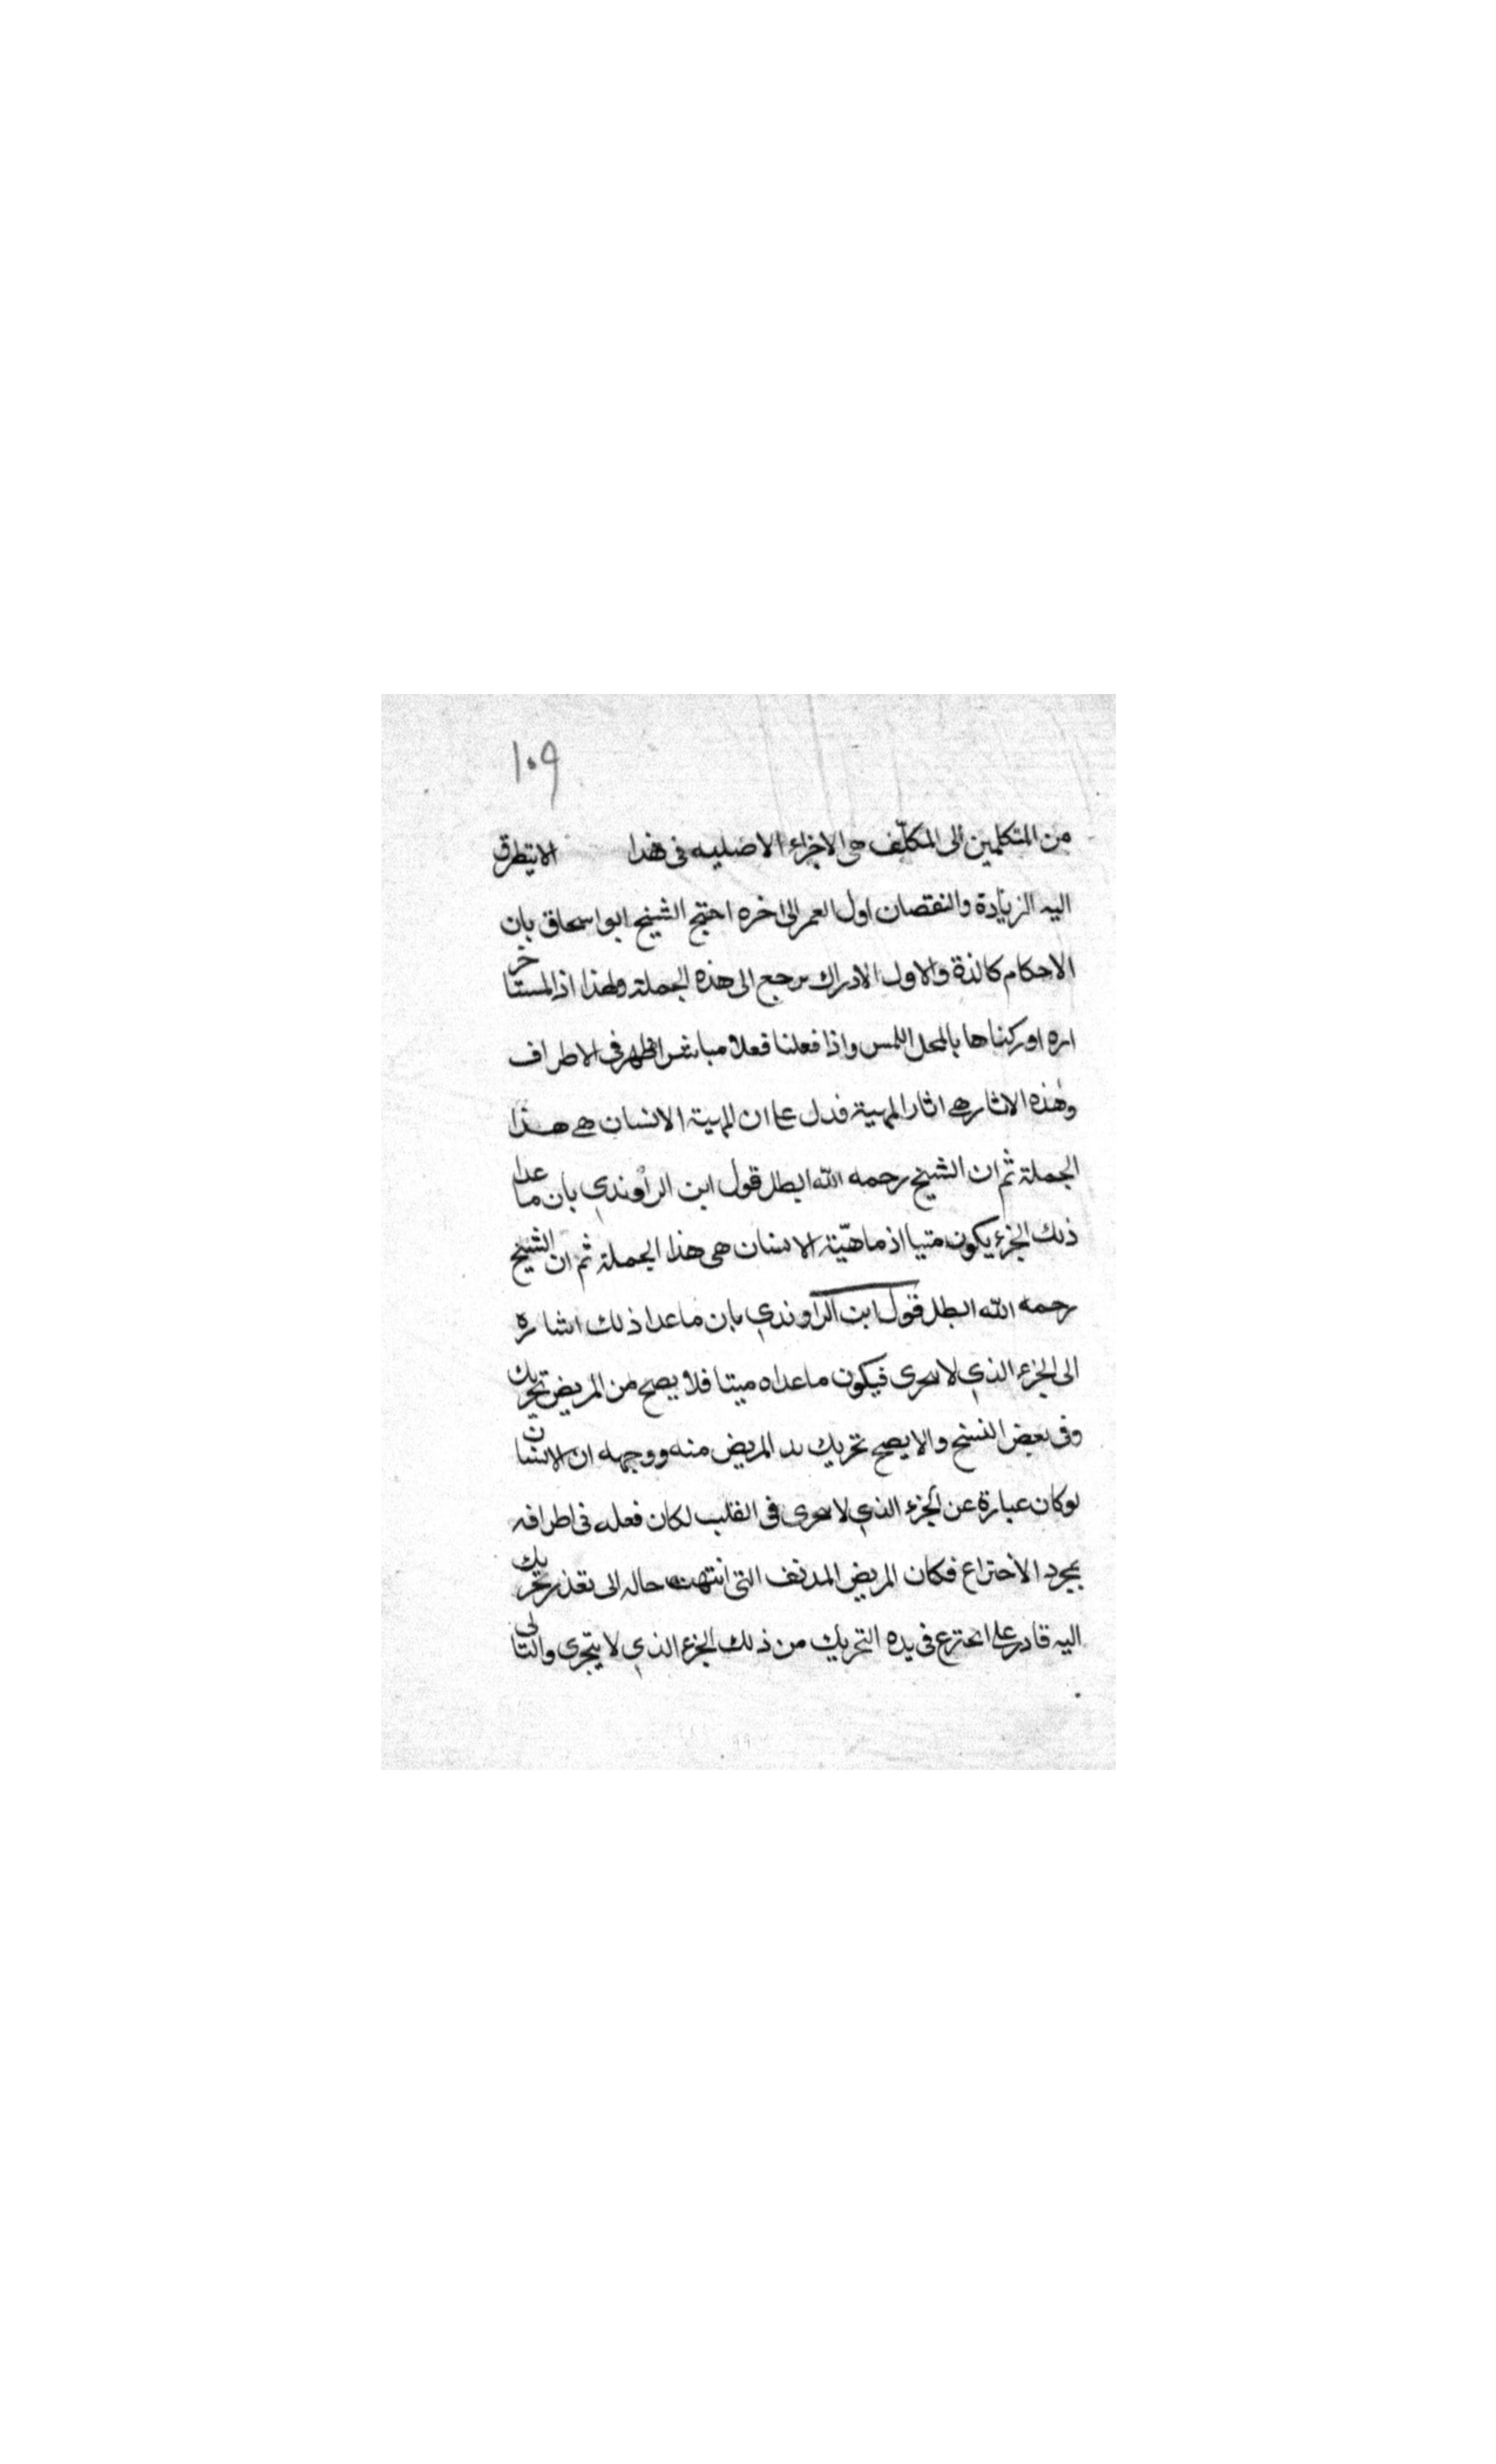 ١٠٩
من المتكلمين الى المكلّف هي الاجزاء الاصليه في هذا الايتطرق
اليه الزيادة والنقصان اول العمر الى اخره احتج الشيخ ابو اسحاق بان
الاحكام كالذة والاول الادراك يرجع الى هذه الجملة ولهذا اذالمستاخر
اره اوركناها بالمحل اللمس واذا فعلنا فعلا مباشرا ظهر في الاطراف
وهذه الاثار هي اثار المهية فدل على ان المهية الانسان هي هذا
الجملة ثم ان الشيخ رحمه الله ابطل قول ابن الراوندي بان ماعدا
ذلك الجزء يكون متيا اذ ماهيّة الانسان هي هذا الجملة ثم ان الشيخ
رحمه الله ابطل قول ابن الراوندي بان ماعدا ذلك اشارة
الى الجزء الذي لا يتجرى فيكون ماعداه ميتا فلا يصح من المريض تحريك
وفي بعض النسخ والا يصح تحريك يد المريض منه ووجهه ان الانسان
لوكان عبارة عن الجزء الذي لا يتجرى في القلب لكان فعله في اطرافه
بمجرد الاختراع فكان المريض المدنف التي انتهت حاله الى تعذر تحريك
اليه قادر على اخترع في يده التحريك من ذلك الجزء الذي لا يتجرى والتالى